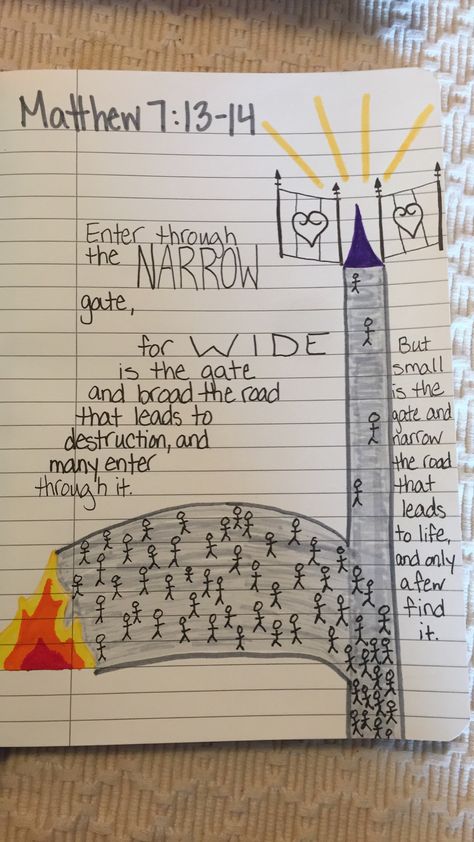 Matthew 7:13-14
Enter through
the NARROW
gate,
for WIDE
is the gate
and broad the road
that leads to
destruction, and
many enter
through it.
But
small
is the
gate and
narrow
the road
that
leads
to life,
and only
a few
find
it.